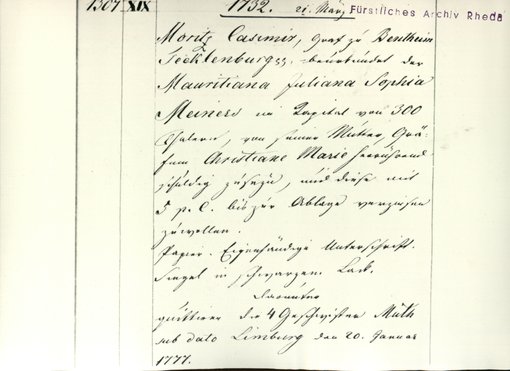 1307 XIX 1732. 21. März Fürstliches Archiv Rheda
Moritz Casimir, Graf zu Bentheim
Tecklenburg pp. beurkundet der
Mauritiana Juliana Sophia
Meiners ein Kapital von 300
Thalern, von seiner Mutter, Grä-
finn Christiane Marie herrührend
schuldig zu seyn, und diese mit
5 p. C. bis zur Ablage verzinsen
zu wollen.
Papier. Eigenhändige Unterschrift.
Siegel in schwarzem Lack.
Darunter
quittiren die 4 Geschwister Müth
sub dato Limburg den 20. Januar
1777.